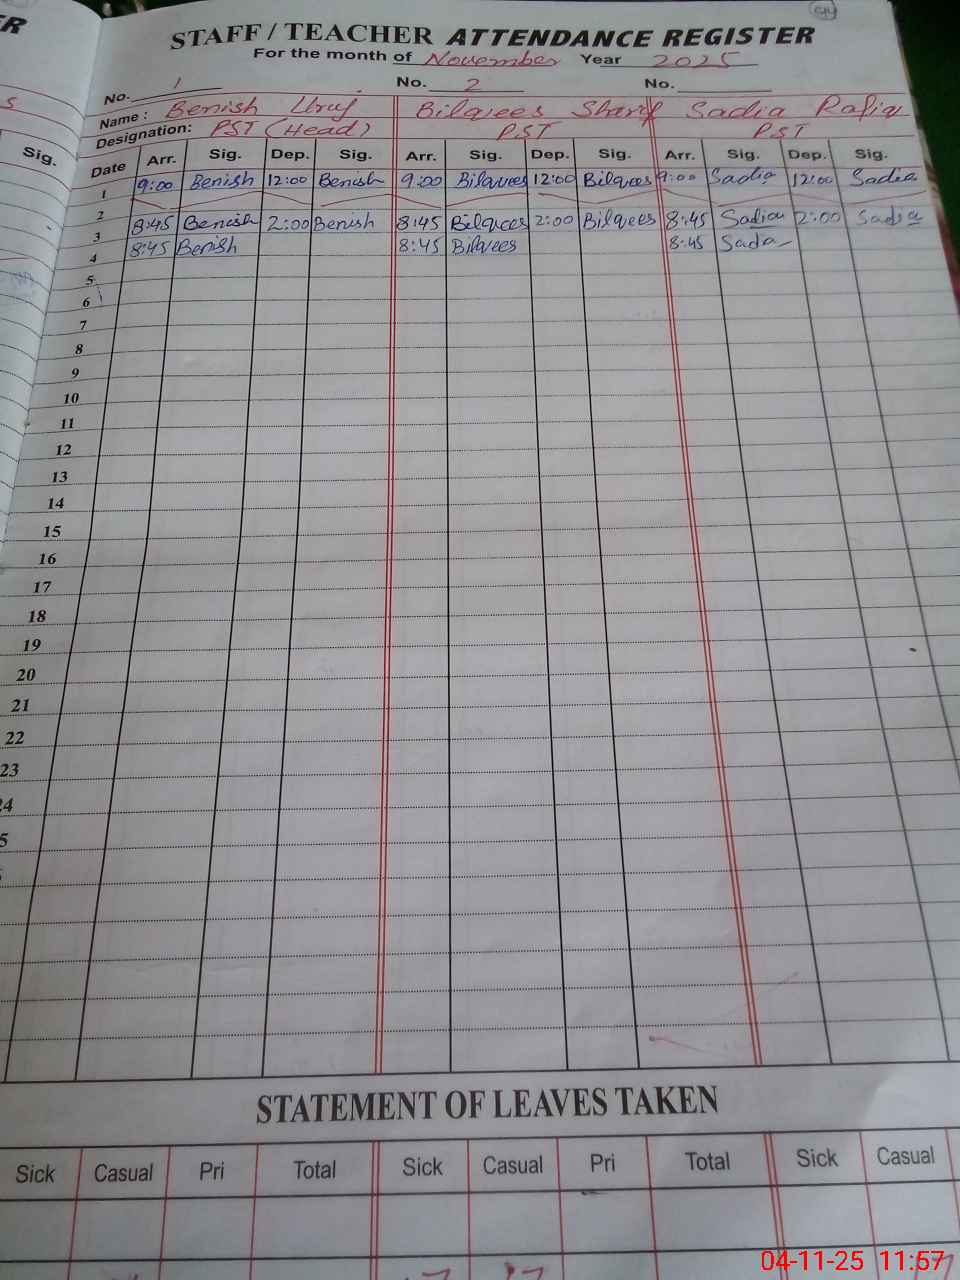 ER
STAFF / TEACHER ATTENDANCE REGISTER
For the month of November Year 2025
No. 1 No. 2 No.
Name : Benish Bilqees Sharif Sadia Rafiq
Designation: PST (Head) PST PST
Sig. Date Arr. Sig. Dep. Sig. Arr. Sig. Dep. Sig. Arr. Sig. Dep. Sig.
1 9:00 Benish 12:00 Benish 9:00 Bilqees 12:00 Bilqees 9:00 Sadia 12:00 Sadia
2
3 8:45 Benish 2:00 Benish 8:45 Bilqees 2:00 Bilqees 8:45 Sadia 2:00 Sadia
4 8:45 Benish 8:45 Bilqees 8:45 Sada
5
6
7
8
9
10
11
12
13
14
15
16
17
18
19
20
21
22
23
24
5
STATEMENT OF LEAVES TAKEN
Sick Casual Pri Total Sick Casual Pri Total Sick Casual
04-11-25 11:57